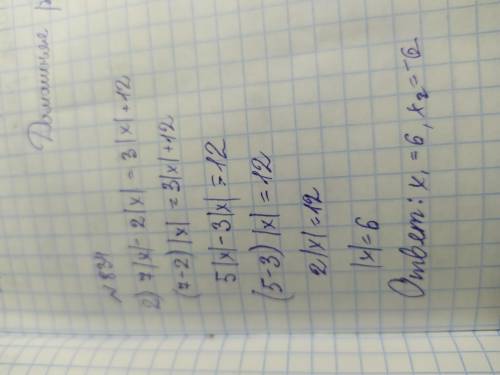 Домашняя
№834
2) 7|x| - 2|x| = 3|x| + 12
(7-2) |x| = 3|x| + 12
5|x| - 3|x| = 12
(5-3) |x| = 12
2|x| = 12
|x| = 6
Ответ: x₁ = 6, x₂ = -6